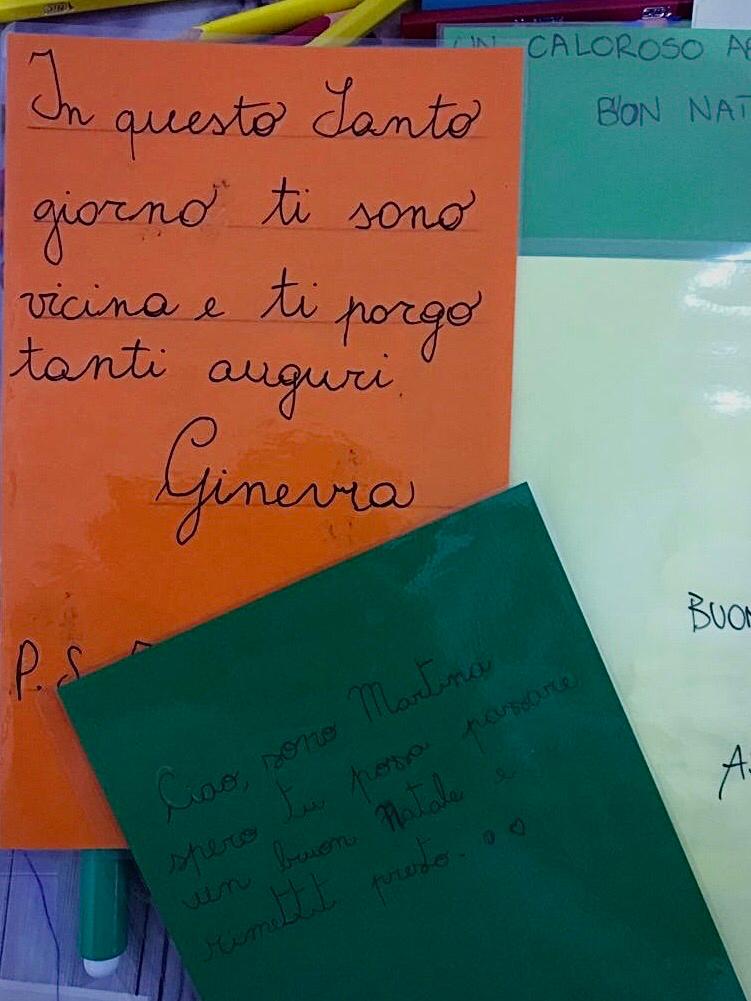 In questo Santo
giorno ti sono
vicina e ti porgo
tanti auguri
Ginevra
P.S.
UN CALOROSO
BUON NAT
BUON
A.
Ciao, sono Martina
spero tu possa passare
un buon Natale e
rimettit presto.